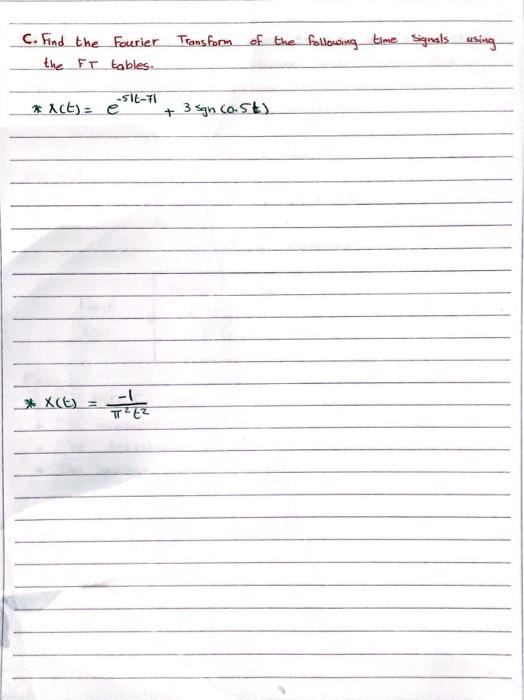 C. Find the Fourier Transform of the following time signals using
the FT tables.
* x(t) = e^{-5|t-7|} + 3 sgn (0.5t)
* X(t) = -1/π²t²